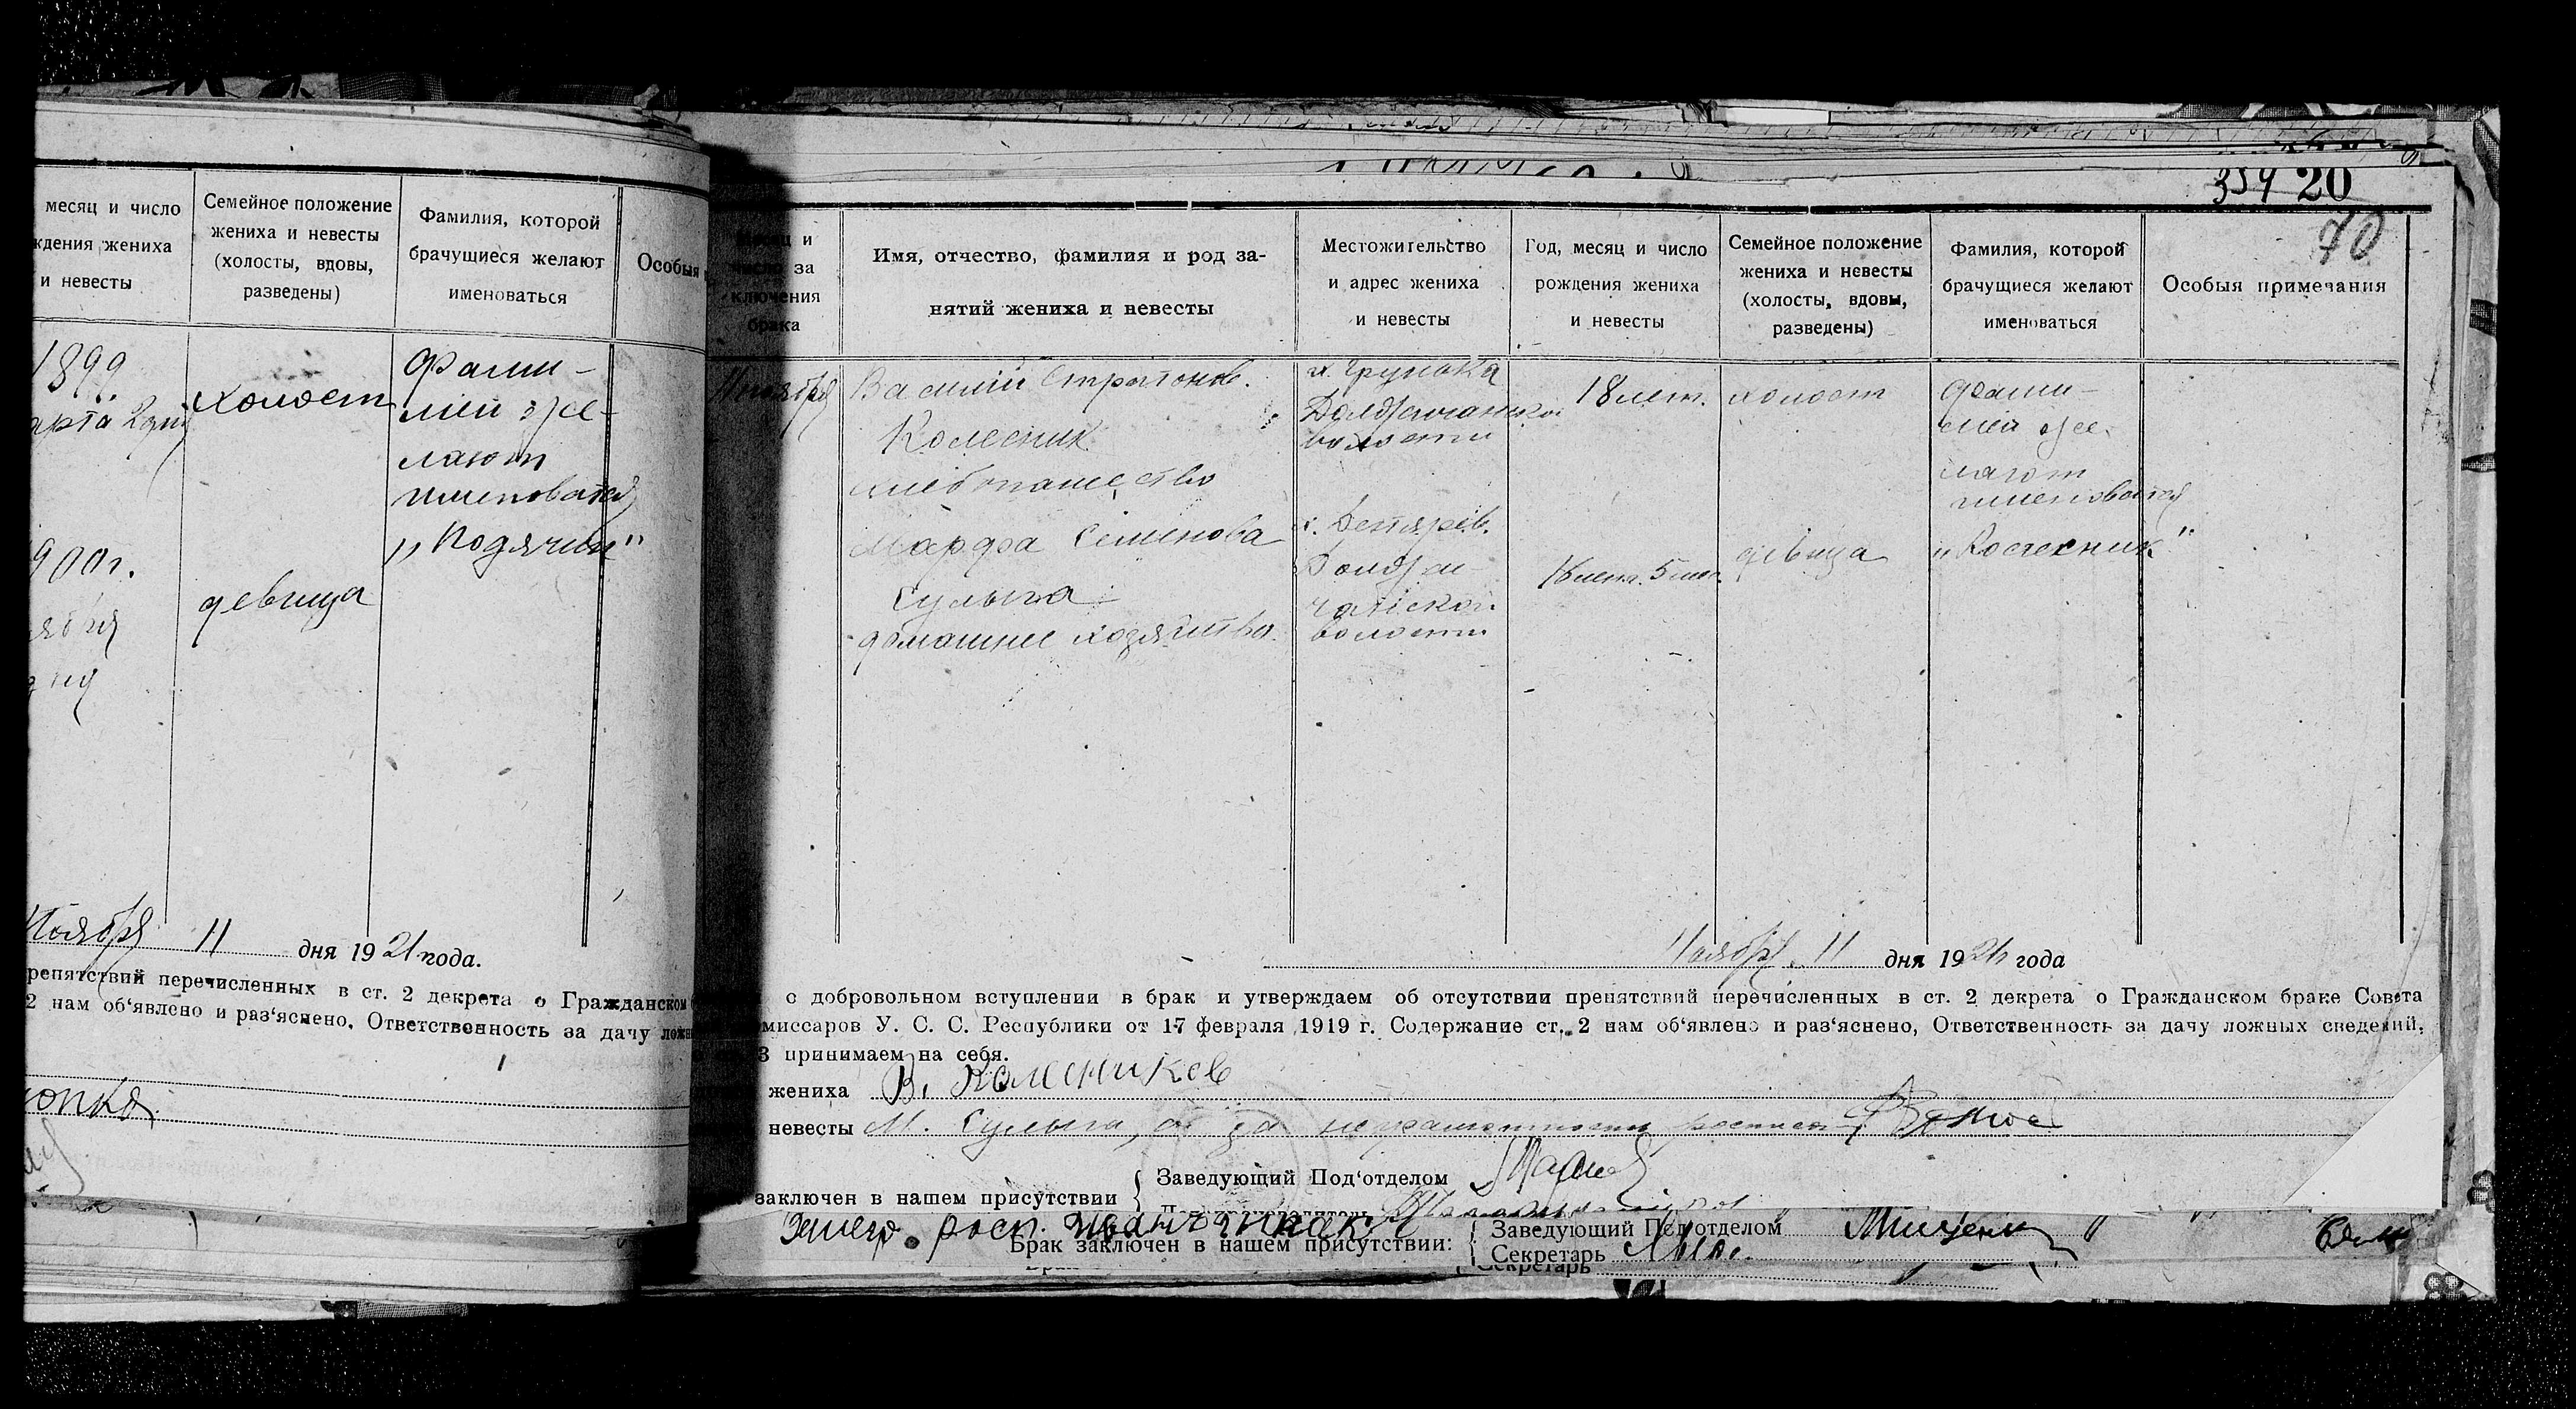 месяц и число
ждения жениха
и невесты
Семейное положение
жениха и невесты
(холосты, вдовы,
разведены)
Фамилия, которой
брачущиеся желают
именоваться
Особыя
1899
холост
Фами-
лией же-
лают
именоватся
900г.
девица
Ноября 11 дня 1921 года.
репятствий перечисленных в ст. 2 декрета о Гражданском
2 нам об‘явлено и раз‘яснено. Ответственность за дачу ложн
354 20
70
число за
ключения
брака
Имя, отчество, фамилия и род за-
нятий жениха и невесты
Местожительство
и адрес жениха
и невесты
Год, месяц и число
рождения жениха
и невесты
Семейное положение
жениха и невесты
(холосты, вдовы,
разведены)
Фамилия, которой
брачущиеся желают
именоваться
Особыя примечания
11 ноября
Василий Стратонов.
Колесник
хлебопашество
Марфа Семенова
Сулыга
домашнее хозяйство.
х. Грунька
Должанской
волости
х. Дехтярев.
волости
18 лет.
16 лет. 5 мес.
холост
девица
фами-
лией же-
лают
именоватся
„Колесник"
Ноября 11 дня 1921 года
о добровольном вступлении в брак и утверждаем об отсутствии препятствий перечисленных в ст. 2 декрета о Гражданском браке Совета
миссаров У. С. С. Республики от 17 февраля 1919 г. Содержание ст. 2 нам об‘явлено и раз‘яснено, Ответственность за дачу ложных сведений,
3 принимаем на себя.
жениха В. Колесников
невесты М. Сулыга, а за неграмотности росписал.
заключен в нашем присутствии
Заведующий Под‘отделом
Брак заключен в нашем присутствии:
Заведующий Под‘отделом
Секретарь
Секретарь